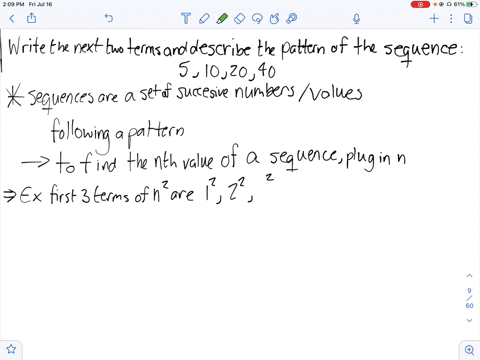 2:09 PM Fri Jul 16
61%
Write the next two terms and describe the pattern of the sequence:
5, 10, 20, 40
* sequences are a set of succesive numbers/values
following a pattern
→ to find the nth value of a sequence, plug in n
⇒ Ex first 3 terms of n² are 1², 2², ²
9
/
60